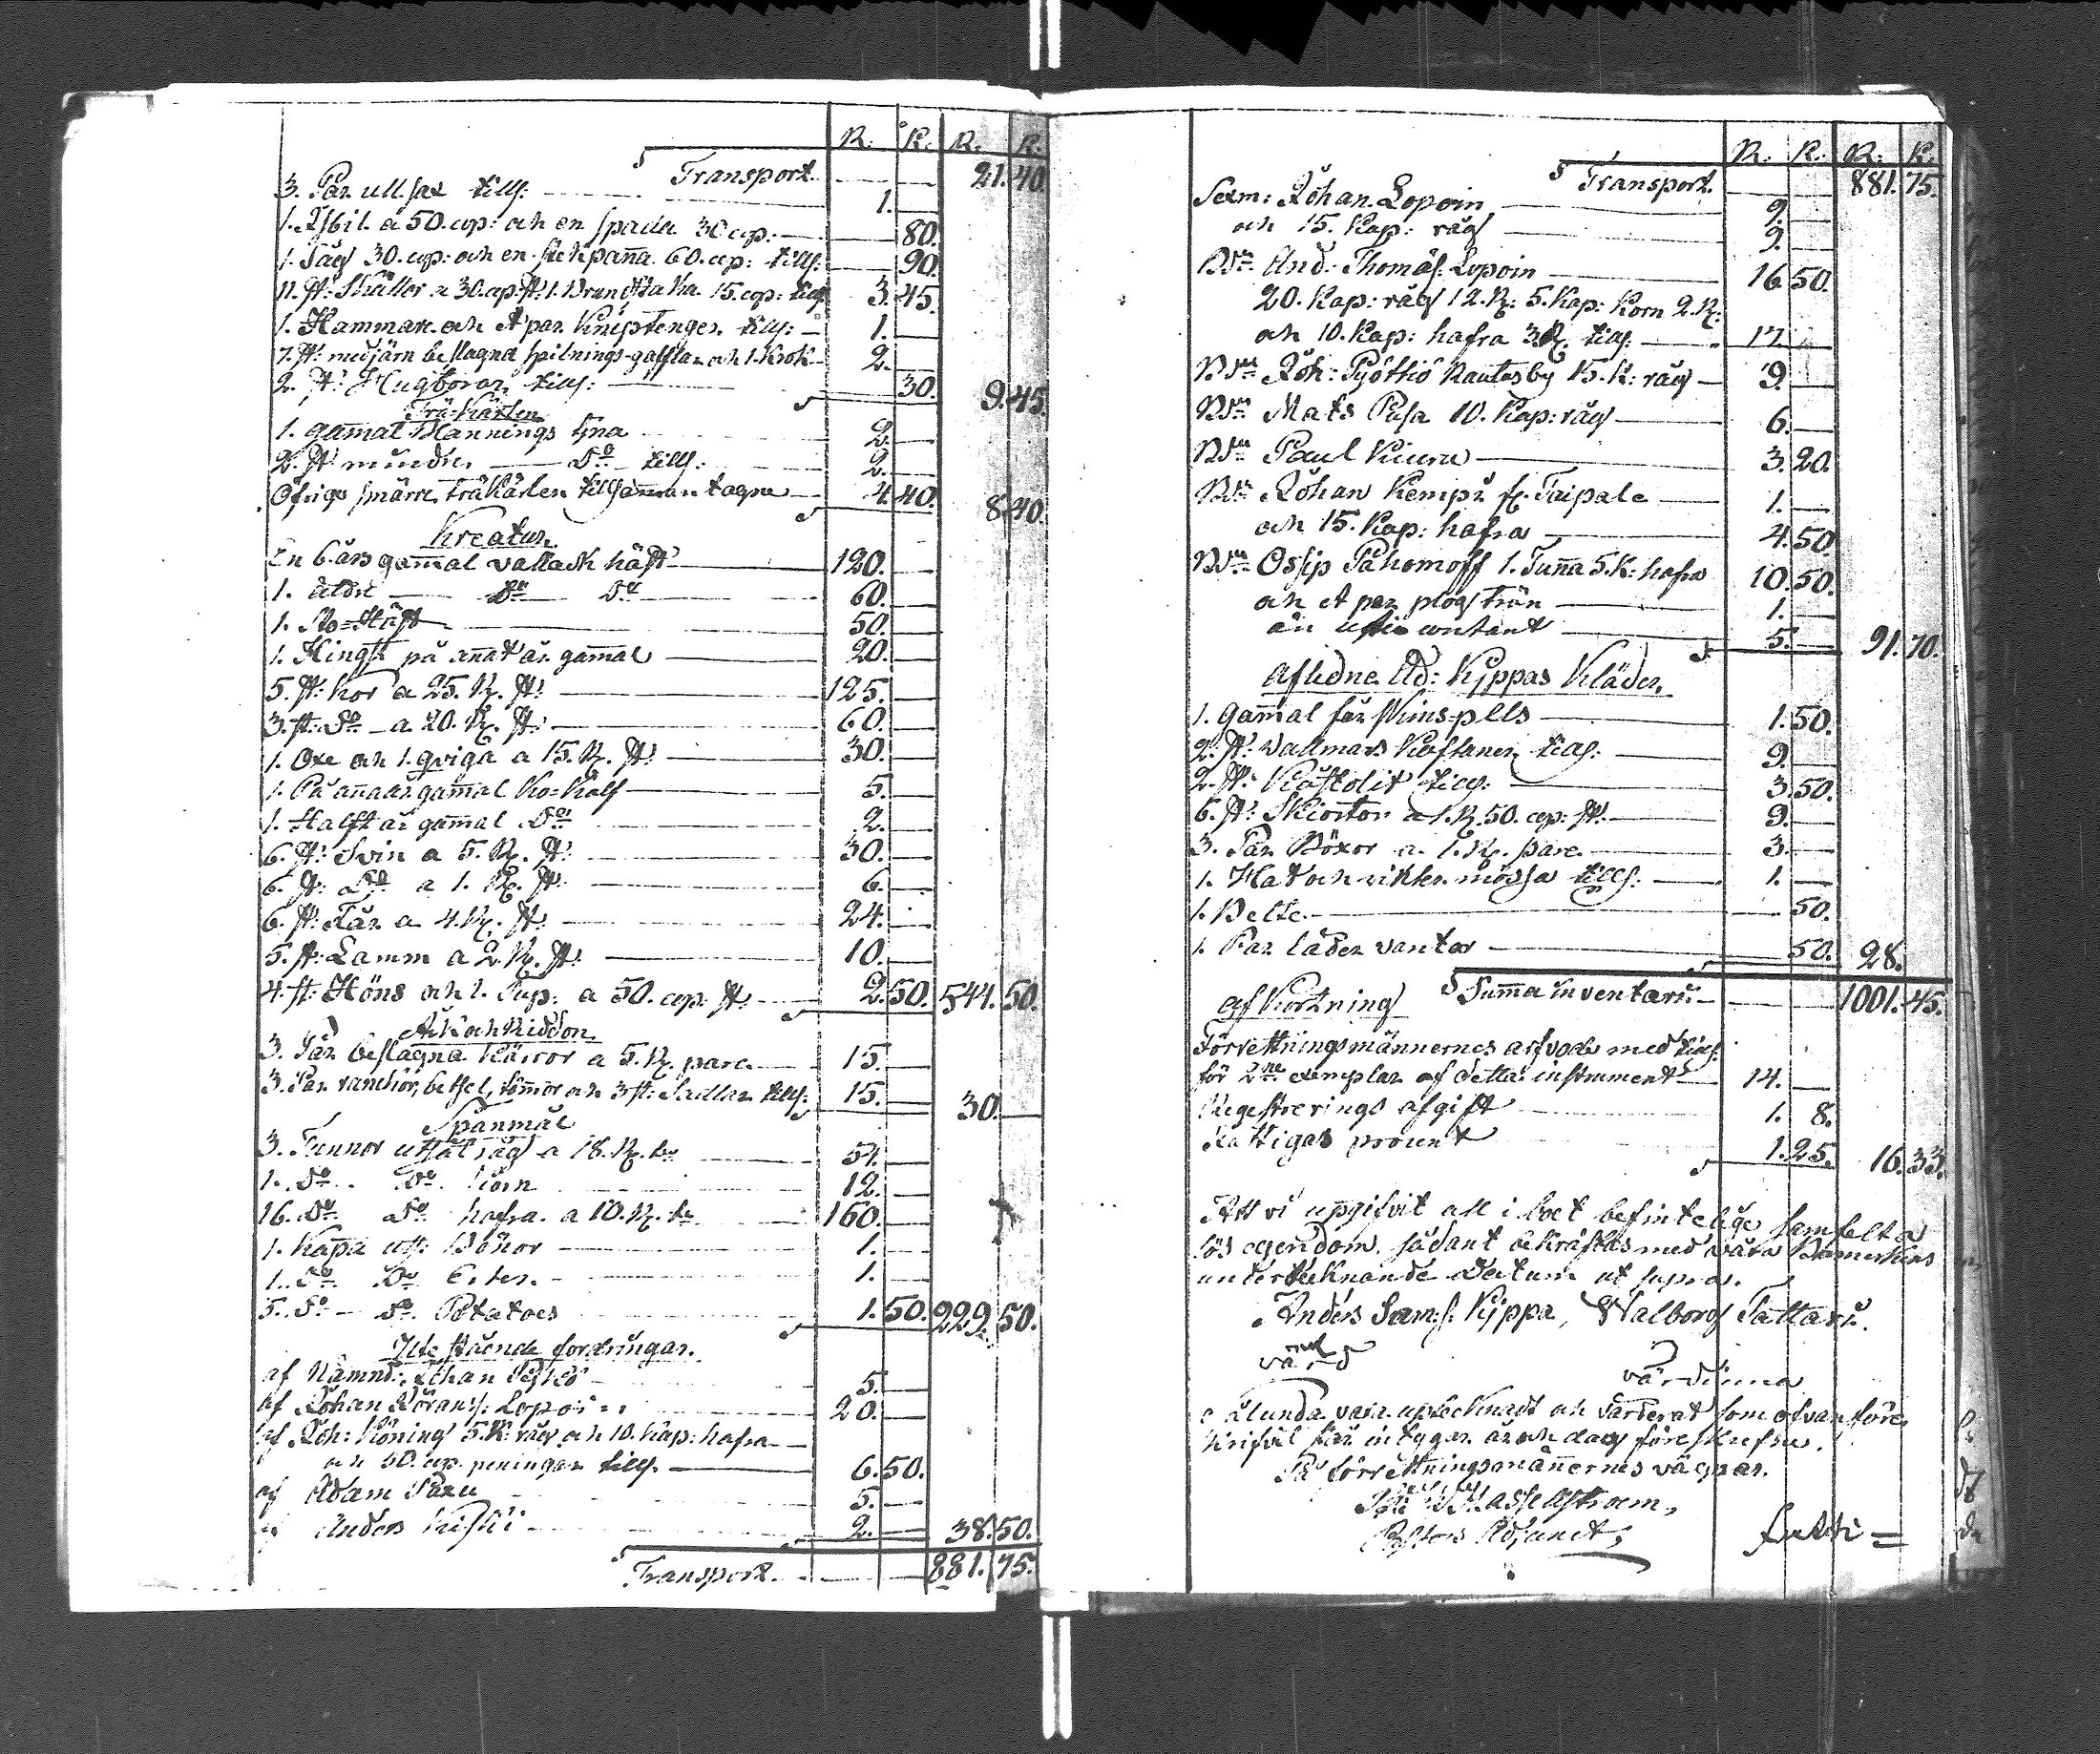 R. K. R. K.
Transport 21. 40.
3. Par ullsax tills: 1.
1. Isbil a 50. cop: och en spada 30 cop: 80.
1. Såg 30. cop: och en stekpanna 60. cop: tills: 90.
11. st: Skällor a 30. cop. st: 1. Brandstaka 15. cop: tills 3. 45.
1. Hammare och et par Kniptenger tills: 1.
7. st: med järn beslagna gafflar och 1. Krok 2.
2. st: Hugborar tills: 30. 9. 45.
Trä-Kärlen
1. gammal Brannings tyna 2.
2. st mindre Do tills: 2.
Öfrige smärre träkärlen tillsamman tagne 4. 40. 8. 40.
Kreatur
En 6. års gammal vallack häst 120.
1. äldre Do Do 60.
1. Sto-Häst 50.
1. Hingst på annat år gammal 20.
5. st: kor a 25. R. st: 125.
3. st: Do a 20. R. st: 60.
1. Oxe och 1. qviga a 15. R. st: 30.
1. På annaår gammal Ko-Kalf 5.
1. Halft år gammal Do 2.
6. st: Svin a 5. R. st: 30.
6. st: Do a 1. R. st: 6.
6. st: Får a 4. R. st: 24.
5. st: Lamm a 2. R. st: 10.
4. st: Höns och 1. Tup: a 50. cop. st: 2. 50. 544. 50.
Åk och Riddon
3. Par beslagna Kärror a 5. R. paret 15.
3. Par rankior, betsel, tömmor och 3 st: Sadlar tills: 15. 30.
Spanmål
3. Tunnor råg a 18. R. 54.
1. Do Do Korn 12.
16. Do Do hafra a 10. R. 160.
1. Kapa Bönor 1.
1. Do Do Erter 1.
5. Do Do Potatoes 1. 50. 229. 50.
Utestående fordringar.
af Nämnd: Johan 5.
af Johan Lopoin 20.
af Joh: Köning 5. K: råg och 10. Kap: hafra
och 50. cop. peningar tills. 6. 50.
af Adam Paxu 5.
Anders 2. 38. 50.
Transport 881. 75.
R. K. R. K.
Transport 881. 75.
Sexm: Johan Lopoin 9.
och 15. Kap: råg 9.
Bdn And: Thomas: Lopoin 16 50.
20. Kap: råg 12. R: 5. Kap: Korn 2. R:
och 10. Kap: hafra 3. R. tills. 17
Bdn Joh: Pyöttiö Rautasby 15. K: råg 9.
Bdn Mats Pusa 10. Kap: råg 6.
Bdn Paul Kiuru 3. 20.
Bdn Johan Kempi fr. Taipale 1.
och 15. Kap: hafra 4. 50
Bdn Ossip Pahomoff 1. Tunna 5. K: hafra 10. 50.
och et par plogträn 1.
än contant 5. 91. 70.
Aflidne Ad: Kyppas Kläder.
1. gammal fårskins-pels 1. 50.
2. st: Vallmars Kaftaner tills: 9.
2. st: tills: 3. 50.
6. st: Skiortor a 1. R. 50. cop: st: 9.
3. Par Böxor a 1. R. paret 3.
1. Hat och vinter mössa tills: 1.
1. Belte 50.
1. Par läder vantar 50. 28.
Summa inventarii 1001. 45.
Afkortning
Förrettningsmännernes arfvode med
för 2ne exemplar af detta instrument 14.
Registrerings afgift 1. 8.
Fattigas procent 1. 25. 16. 33.
Att vi upgifvit all i boet befintelige samfelta
lös egendom, sådant bekräftas med våra Bomerkens
undertecknande Datum ut supra.
Anders Sam:s: Kyppa, Walborg Tattari.
värd värdinna
Ålunda vara uptecknadt och värderat som ofvan före
skrifvit står intygar år och dag föreskrefne.
På förrettningsmännernes vägnar.
Hasselstroem,
Pastors Adjunct,